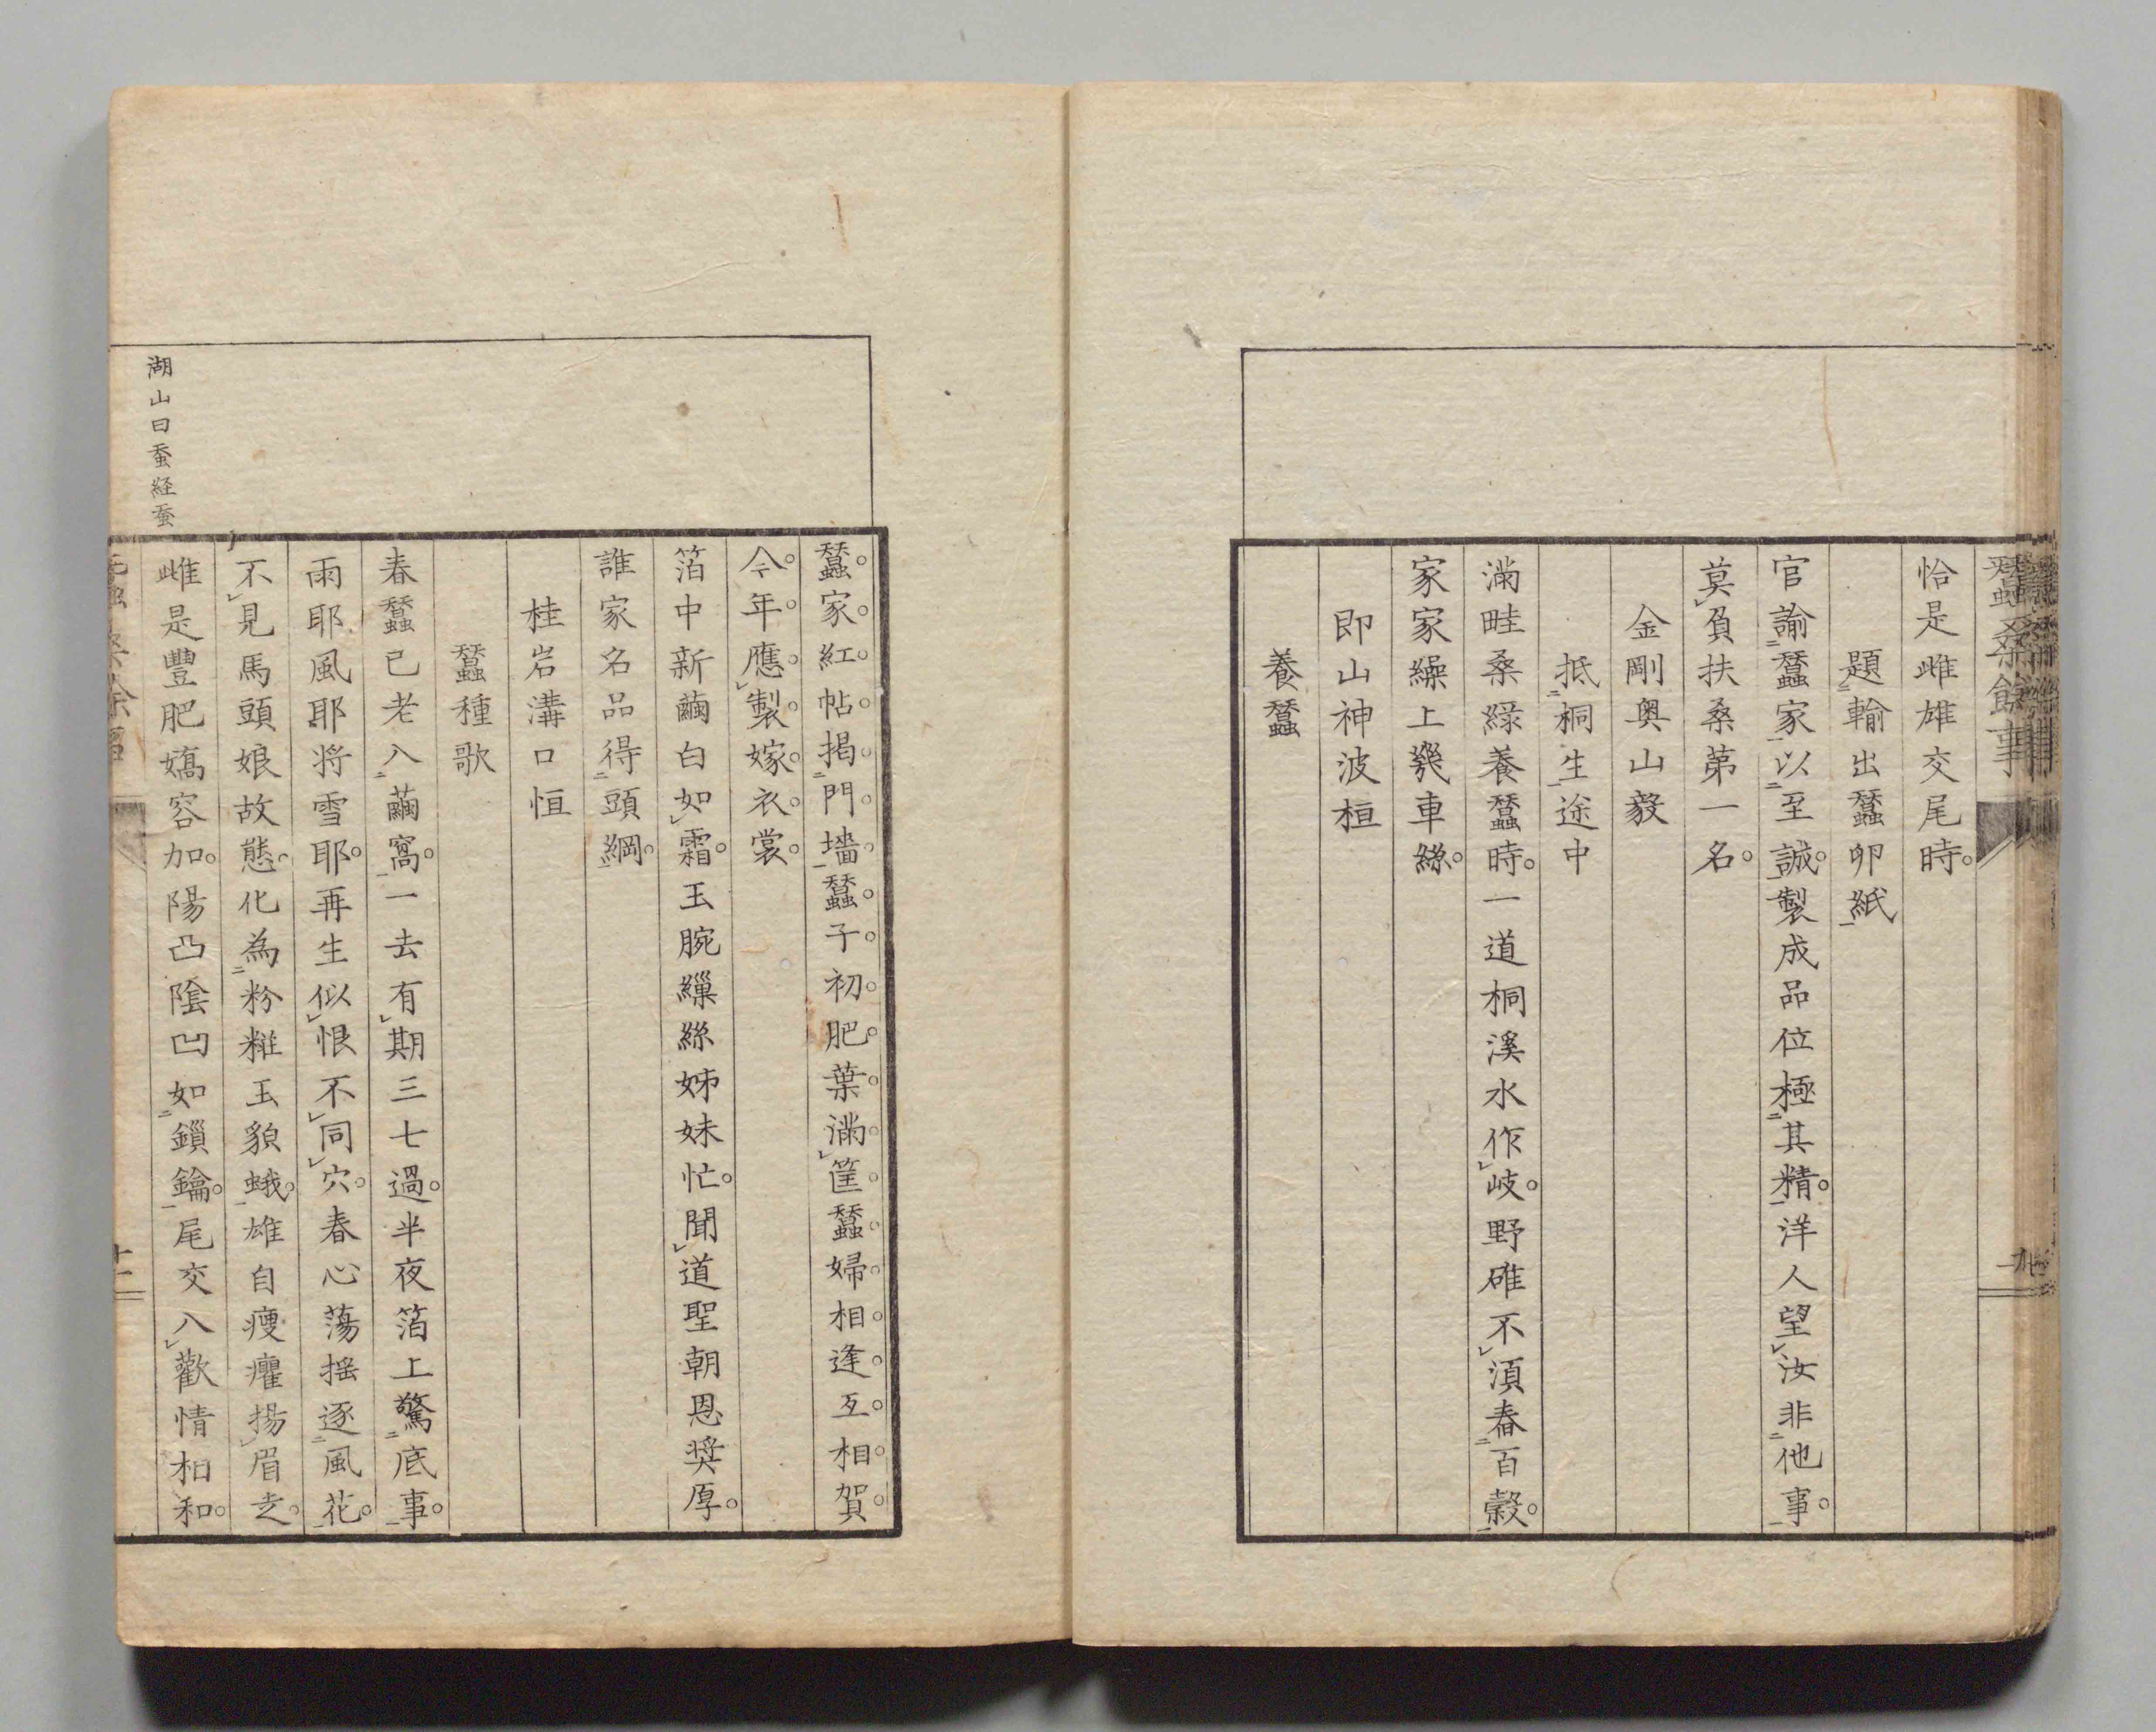 蠶桑餘事
恰是雌雄交尾時。
題輸出蠶卵紙
官諭蠶家以至誠。製成品位極其精。洋人望汝非他事。
莫負扶桑第一名。
金剛奥山毅
抵桐生途中
滿畦桑綠養蠶時。一道桐溪水作岐。野碓不須舂百穀。
家家繰上幾車絲。
即山神波桓
養蠶
蠶家紅帖揭門墻蠶子初肥葉滿筐蠶婦相逢互相賀
今年應製嫁衣裳
箔中新繭白如霜。玉腕繅絲姊妹忙。聞道聖朝恩奬厚。
誰家名品得頭綱。
桂岩溝口恒
蠶種歌
春蠶已老入繭窩。一去有期三七過。半夜箔上驚底事。
雨耶風耶将雪耶。再生似恨不同穴。春心蕩揺逐風花。
不見馬頭娘故態。化為粉粧玉貌蛾。雄自瘦癯揚眉走。
雌是豐肥嬌容加。陽凸陰凹如鎖鑰。尾交入歡情相和。
湖山曰蚕経蚕